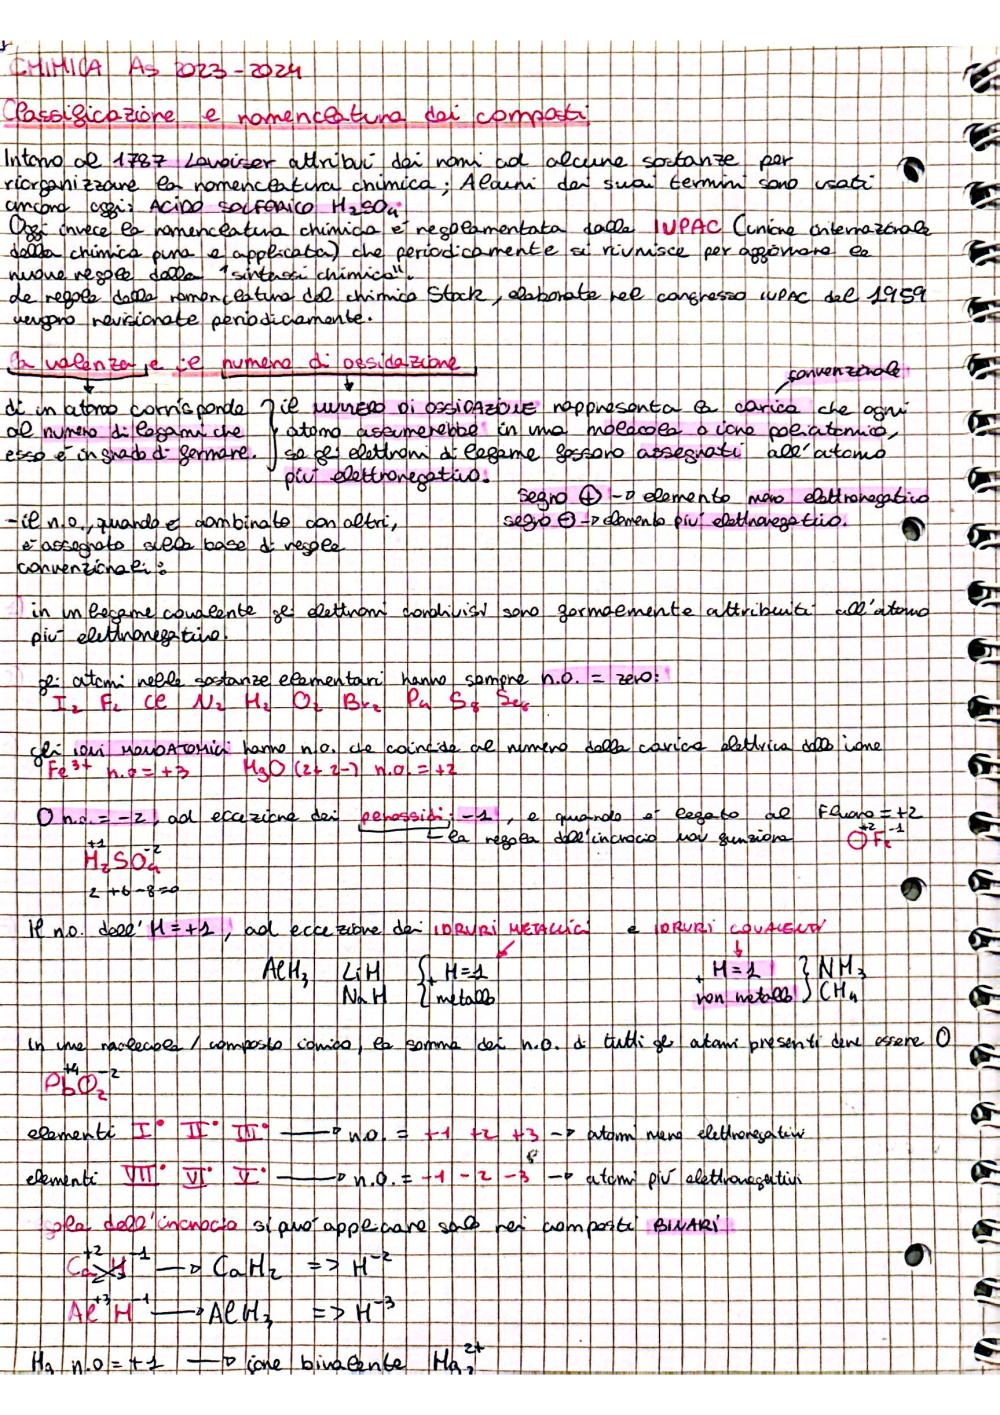 CHIMICA AS 2023-2024
Classificazione e nomenclatura dei composti
Intorno al 1787 Lavoiser attribuì dei nomi ad alcune sostanze per
riorganizzare la nomenclatura chimica; Alcuni dei suoi termini sono usati
ancora oggi: ACIDO SOLFORICO H₂SO₄
Oggi invece la nomenclatura chimica è regolamentata dalla IUPAC (unione internazionale
della chimica pura e applicata) che periodicamente si riunisce per aggiornare le
nuove regole della "sintassi chimica".
Le regole della nomenclatura del chimico Stock, elaborate nel congresso IUPAC del 1959
vengono revisionate periodicamente.
la valenza e il numero di ossidazione
convenzionale
di un atomo corrisponde
al numero di legami che
esso è in grado di formare.
il NUMERO DI OSSIDAZIONE rappresenta la carica che ogni
atomo assumerebbe in una molecola o ione poliatomico,
se gli elettroni di legame fossero assegnati all'atomo
più elettronegativo.
segno ⊕ -> elemento meno elettronegativo
segno ⊖ -> elemento più elettronegativo.
- il n.o., quando è combinato con altri,
è assegnato sulla base di regole
convenzionali:
in un legame covalente gli elettroni condivisi sono formalmente attribuiti all'atomo
più elettronegativo.
gli atomi nelle sostanze elementari hanno sempre n.o. = zero:
I₂ F₂ Cl N₂ H₂ O₂ Br₂ P₄ S₈ Se₈
gli IONI MONOATOMICI hanno n.o. che coincide al numero della carica elettrica dello ione
Fe³⁺ n.o = +3 MgO (2+ 2-) n.o. = +2
O n.o. = -2, ad eccezione dei perossidi: -1, e quando è legato al Fluoro = +2
la regola dell'incrocio non funziona
+2 -1
OF₂
+1 -2
H₂SO₄
2 +6 -8=0
Il n.o. dell'H = +1, ad eccezione dei IDRURI METALLICI e IDRURI COVALENTI
AlH₃ LiH { H=1
NaH + metallo
H=1 } NH₃
+ non metallo CH₄
In una molecola / composto ionico, la somma dei n.o. di tutti gli atomi presenti deve essere 0
+4 -2
PbO₂
elementi I° II° III° -> n.o. = +1 +2 +3 -> atomi meno elettronegativi
elementi VII° VI° V° -> n.o. = -1 -2 -3 -> atomi più elettronegativi
dell'incrocio si può applicare solo nei composti BINARI
Ca⁺² H⁻¹ -> CaH₂ => H⁻²
Al⁺³ H⁻¹ -> AlH₃ => H⁻³
Hg n.o = +1 -> ione bivalente Hg₂²⁺